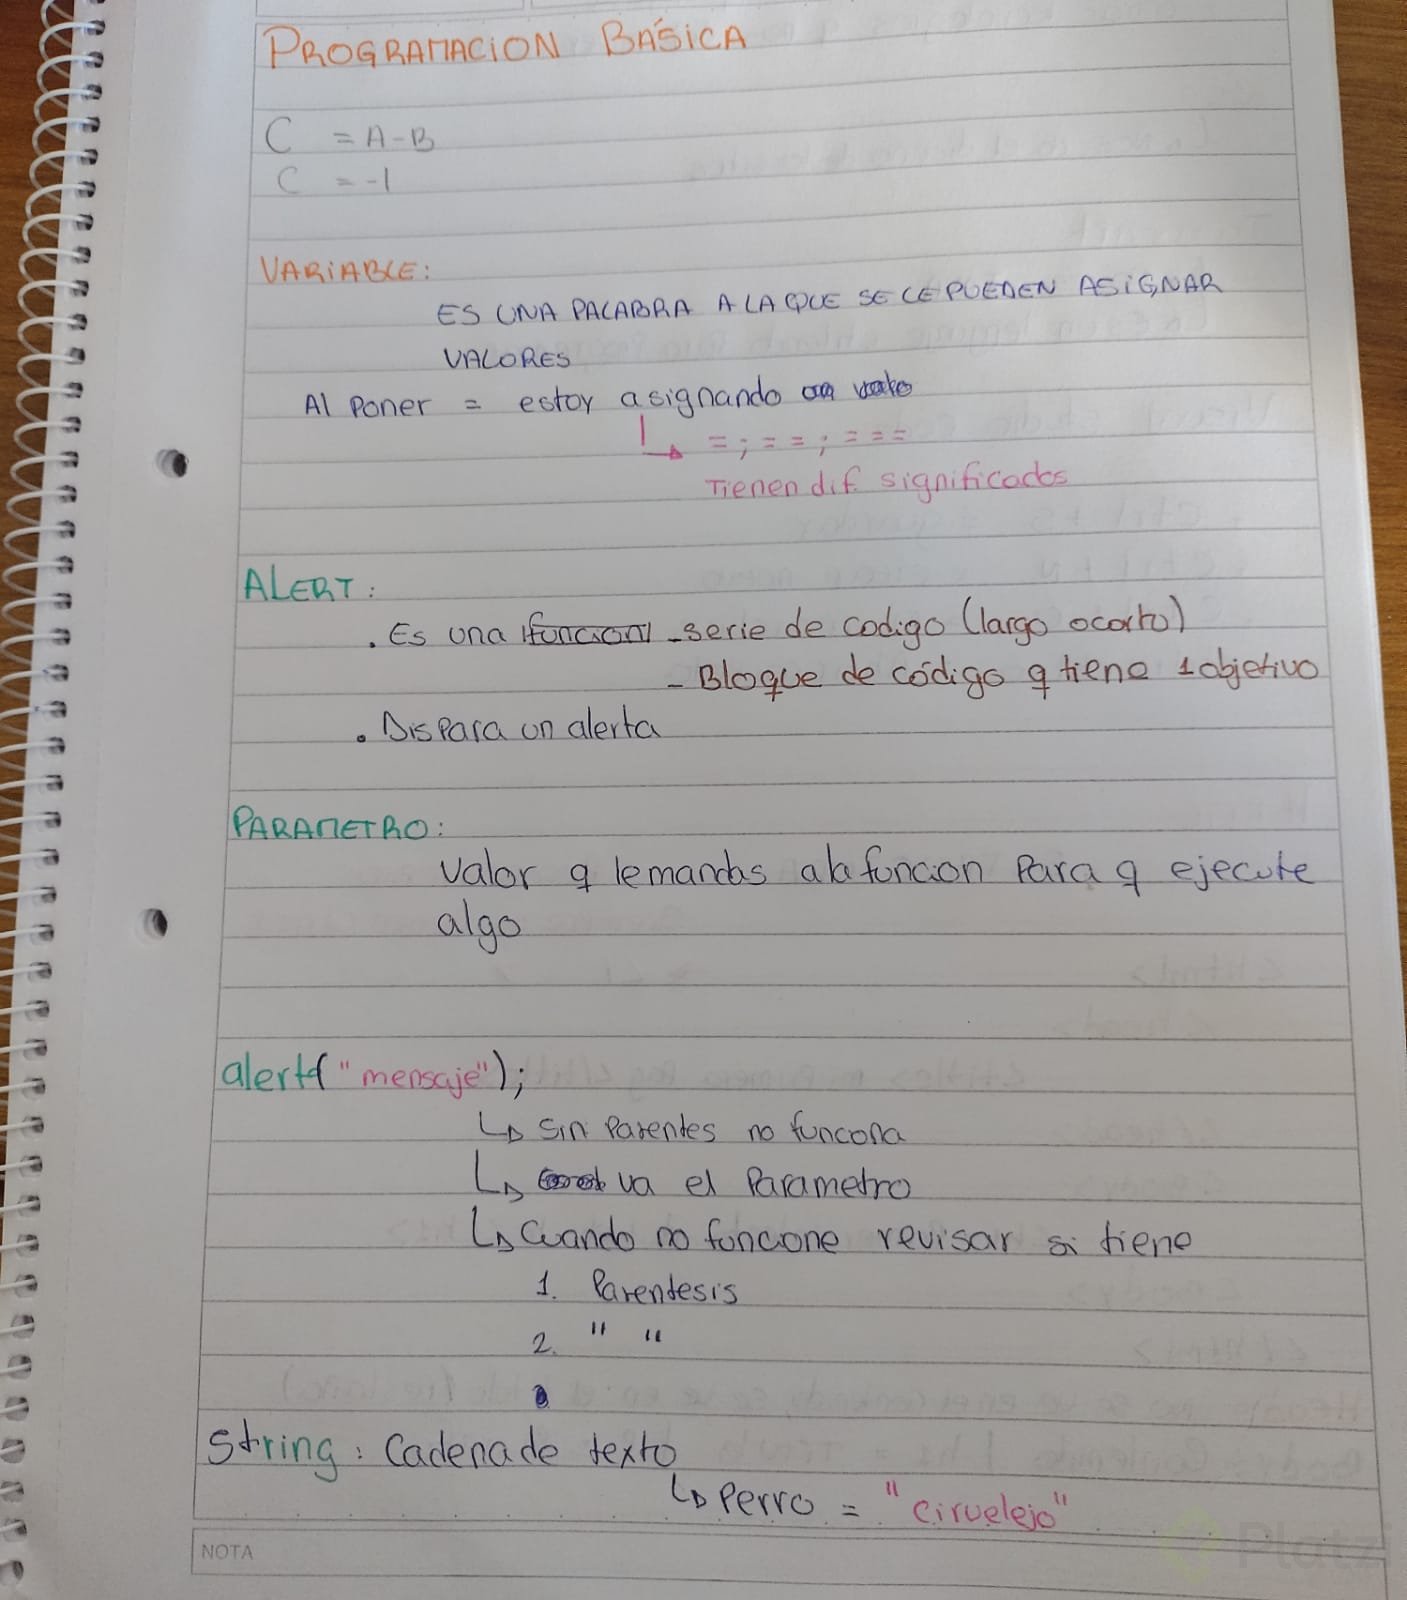 PROGRAMACION BÁSICA
C = A - B
C = -1
VARIABLE:
ES UNA PALABRA A LA QUE SE LE PUEDEN ASIGNAR
VALORES
Al poner = estoy asignando un
↳ = ; == ; ===
Tienen dif. significados
ALERT:
. Es una funcion - serie de codigo (largo o corto)
- Bloque de código q tiene 1 objetivo
. Dispara un alerta
PARAMETRO:
valor q le mandas a la funcion para q ejecute
algo
alert("mensaje");
↳ sin parentes no funcona
↳ va el parametro
↳ Cuando no funcione revisar si tiene
1. Parentesis
2. " "
String: Cadena de texto
↳ Perro = "ciruelejo"
NOTA
Platzi